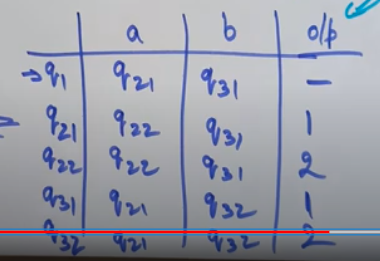 a b o/p
→q1 q21 q31 —
q21 q22 q31 1
q22 q22 q31 2
q31 q21 q32 1
q32 q21 q32 2